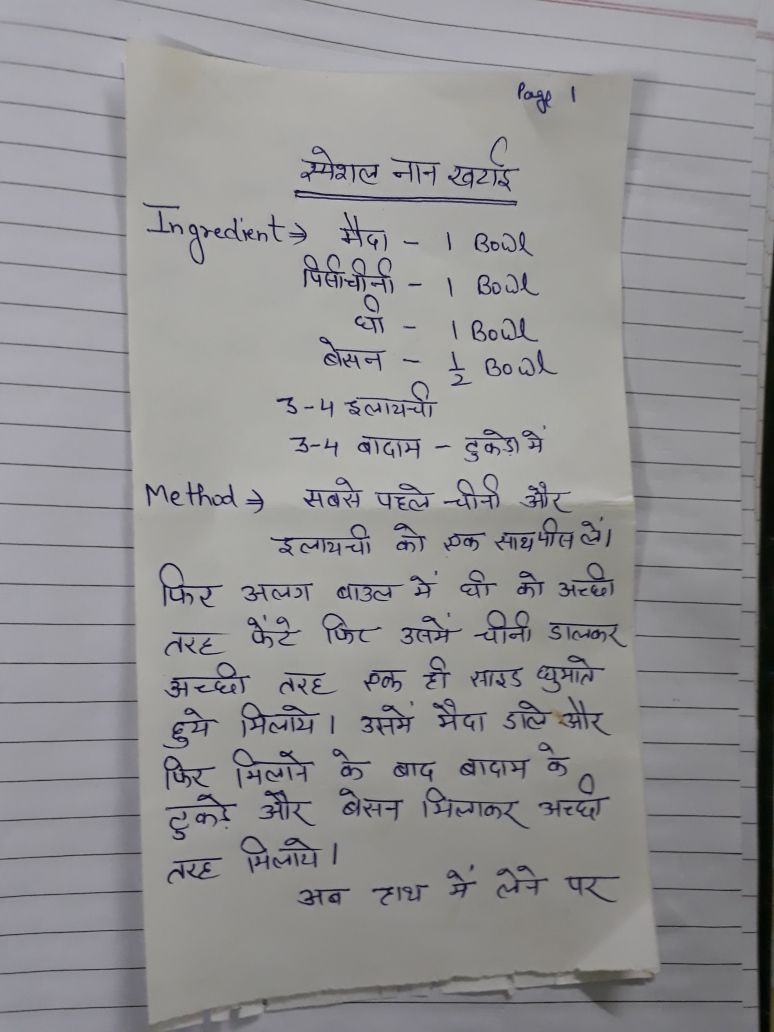 Page 1
स्पेशल नान खटाई
Ingredient ⇒ मैदा – 1 Bowl
पिसीचीनी – 1 Bowl
घी – 1 Bowl
बेसन – 1/2 Bowl
3-4 इलायची
3-4 बादाम – टुकड़ो में
Method ⇒ सबसे पहले चीनी और
इलायची को एक साथ पीस लें।
फिर अलग बाउल में घी को अच्छी
तरह फेंटे फिर उसमें चीनी डालकर
अच्छी तरह एक ही साइड घुमाते
हुये मिलाये। उसमें मैदा डाले और
फिर मिलाने के बाद बादाम के
टुकड़े और बेसन मिलाकर अच्छी
तरह मिलाये।
अब हाथ में लेने पर